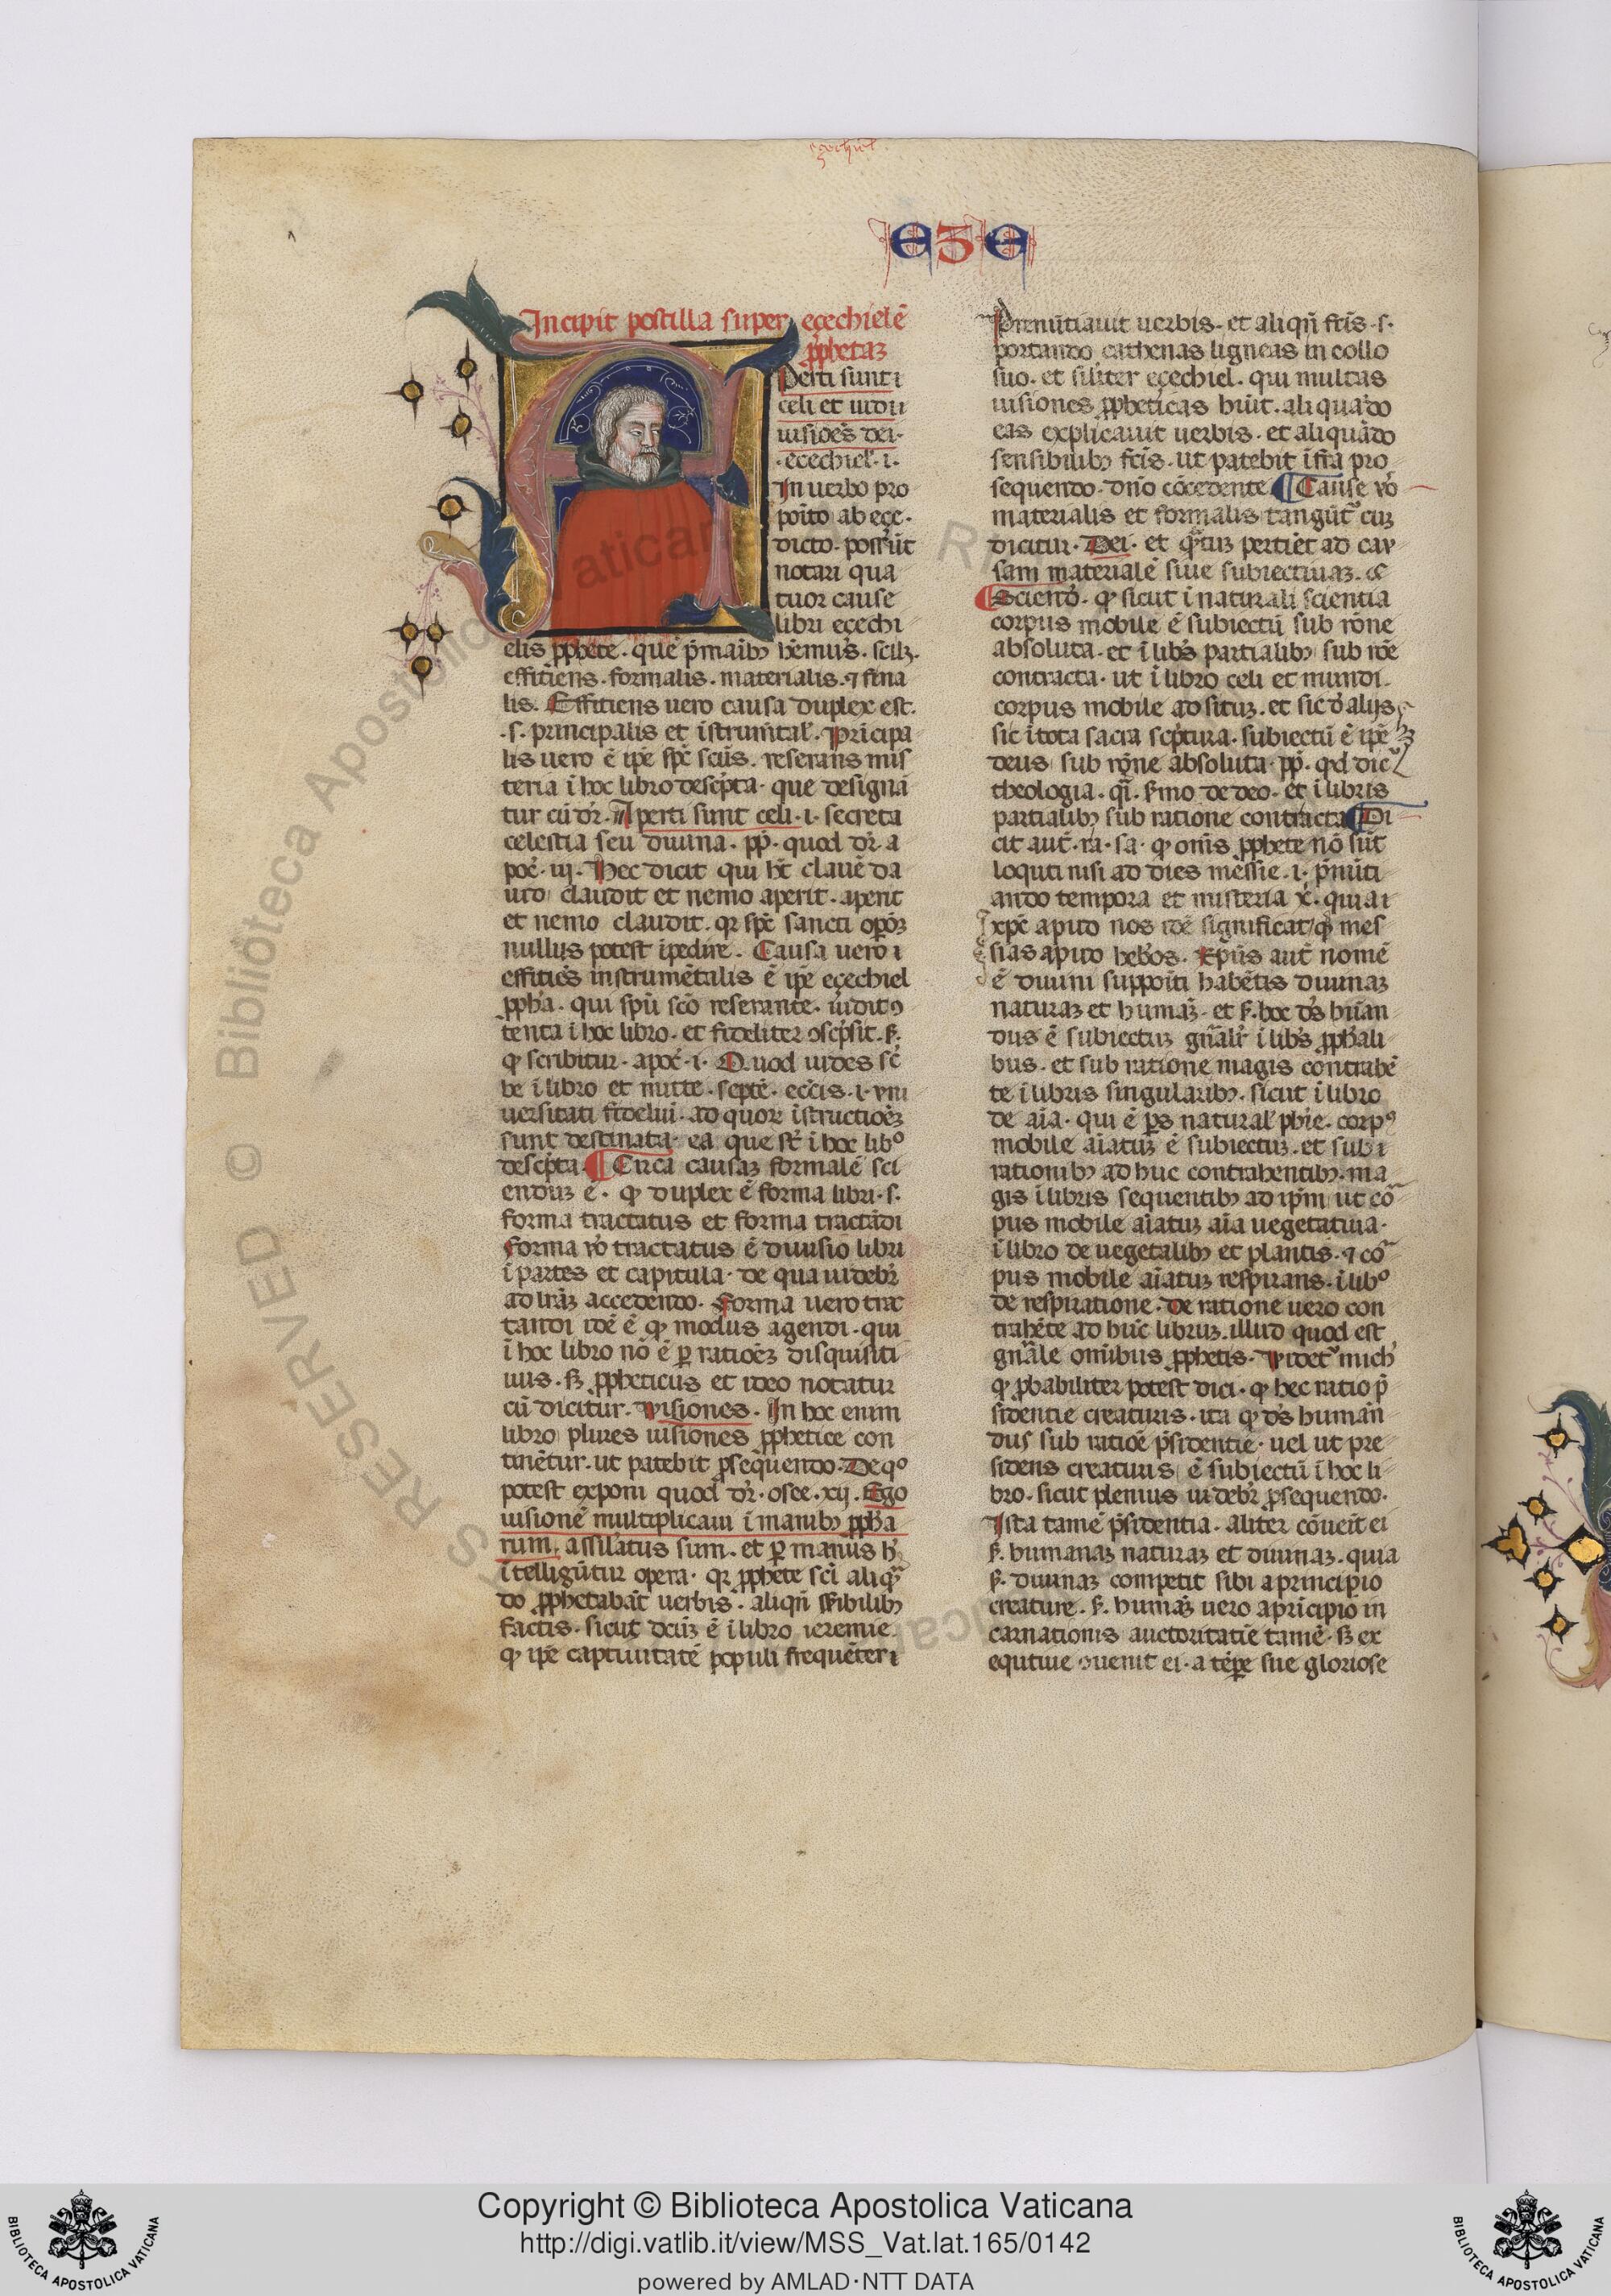 eçechiel
eze
Incipit postilla super eçechielē
pphetaʒ
Perti sunt i
celi et uidi
uisiões dei.
.eçechiel. i.
In uerbo pro
poīto ab eçe.
dicto. possūt
notari qua
tuor cause
libri eçechi
elis pphete. que p̄maib; hēmus. scil;.
efficiens. formalis. materialis. ⁊ fina
lis. Efficiens uero causa duplex est.
.s. principalis et īstrum̄tal̄. Pricipa
lis uero ē ip̄e sp̄c sc̄us. reserans mis
teria ī hoc libro desc̄pta. que designā
tur cū dr̄. Aperti sunt celi. i. secreta
celestia seu diuina. pp̄. quod dr̄. a
poc̄. iij. Hec dicit qui h̄t clauē da
uid claudit et nemo aperit. aperit
et nemo claudit. qr sp̄c sancti op̄oʒ
nullus potest īpedire. Causa uero i
efficiēs instrumētalis ē ip̄e eçechiel
ppħa. qui sp̄u sc̄o reserante. uidit ꝯ
tenta ī hoc libro. et fideliter ꝯsc̄psit. s̄.
qꝫ scribitur. apoc̄. i. Quod uides sc̄
be ī libro et mitte. septē. ecc̄is. i. vni
uersitati fidelium. ad quoꝝ īstructiōeʒ
sunt destinata. ea que st̄ ī hoc libº
desc̄pta. ¶ Circa causaʒ formalē sci
enduʒ ē. qꝫ duplex ē forma libri. s.
forma tractatus et forma tractādi
Forma u̇o tractatus ē diuisio libri
ī partes et capitula. de qua uidebr̄
ad lr̄aʒ accedendo. Forma uero trac
tandi idē ē qꝫ modus agendi. qui
ī hoc libro nō ē ꝑ ratiōeʒ disquisiti
uus. sꝫ ppheticus et ideo notatur
cū dicitur. Visiones. In hoc enim
libro plures uisiones pphetice con
tinētur. ut patebit ꝓsequendo. De qº
potest exponi quod dr̄. osee. xij. Ego
uisionē multiplicaui ī manib; ppħa
rum. assil̄atus sum. et ꝑ manus ħ
ītelligūtur opera. qr pphete sc̄i aliqn̄
do pphetabāt uerbis. aliqn̄ sēsibilib;
factis. sicut dcūʒ ē ī libro ieremie
qꝫ ip̄e captiuitatē populi frequēter i
Prenūtiauit uerbis. et aliqn̄ fc̄is. s.
portando cathenas ligneas in collo
suo. et siliter eçechiel. qui multas
uisiones ppheticas hūit. aliquādo
eas explicauit uerbis. et aliquādo
sensibilib; fc̄is. ut patebit īfra pro
sequendo. dn̄o cōcedente ¶ Cause u̇o
materialis et formalis tangūt᷑ cū
dicitur. Dei. et q̄tuʒ pertiet̄ ad cau
sam materialē siue subiectiuaʒ. ē
¶ Sciend̄. qꝫ sicut ī naturali scientia
corpus mobile ē subiectū sub rōne
absoluta. et ī lib̄s partialib; sub rōe
contracta. ut ī libro celi et mundi.
corpus mobile ad situʒ. et sic d̄ alijs
sic ī tota sacra sc̄ptura. subiectū ē ip̄e
deus sub rōne absoluta. pp̄. qd dic᷑
theologia. qī. s̄mo de deo. et ī libris
partialib; sub ratione contracta ¶ Di
cit aut̄. ra. sa. qꝫ om̄s pphete nō sūt
loquti nisi ad dies messie. i. p̄nūti
ando tempora et misteria x̄. quia i
xp̄c apud nos idē significat qꝫ mes
sias apud heb̄os. Xp̄us aut̄ nomē
ē diuini suppoīti habētis diuinaʒ
naturaʒ et humāʒ. et s̄. hoc d̄s hūan
dus ē subiectuʒ gn̄alr̄ ī lib̄s ppħali
bus. et sub ratione magis contrahē
te ī libris singularib;. sicut ī libro
de aīa. qui ē ꝑs natural̄ phīe. corpꝰ
mobile aīatuʒ ē subiectuʒ. et sub i
rationib; adhuc contrahentib;. ma
gis ī libris sequentib; ad ip̄m ut cō
pus mobile aīatuʒ aīa uegetatiua.
ī libro de uegetalib; et plantis. ⁊ cō
pus mobile aīatuʒ respirans. ī libº
de respiratione. De ratione uero con
trahēte ad hūc libruʒ. illud quod est
gn̄ale omībus pphetis. Videt᷑ mich̄
qꝫ ꝓbabiliter potest dici. qꝫ hec ratio p̄
sidentie creaturis. ita qꝫ d̄s humān
dus sub ratiōe p̄sidentie. uel ut pre
sidens creaturis ē subiectū ī hoc li
bro. sicut plenius uidebr̄ ꝓsequendo.
Ista tamē p̄sidentia. aliter cōueīt ei
s̄. humanaʒ naturaʒ et diuinaʒ. quia
s̄. diuinaʒ competit sibi a principio
creature. s̄. humāʒ uero a pricipio in
carnationis auctoritatīe tamē. sꝫ ex
equtiue ꝯuenit ei. a tēpe sue gloriose
Copyright © Biblioteca Apostolica Vaticana
http://digi.vatlib.it/view/MSS_Vat.lat.165/0142
powered by AMLAD·NTT DATA
BIBLIOTECA APOSTOLICA VATICANA
BIBLIOTECA APOSTOLICA VATICANA